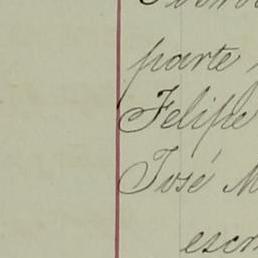 parte
Felipe
José M
escr